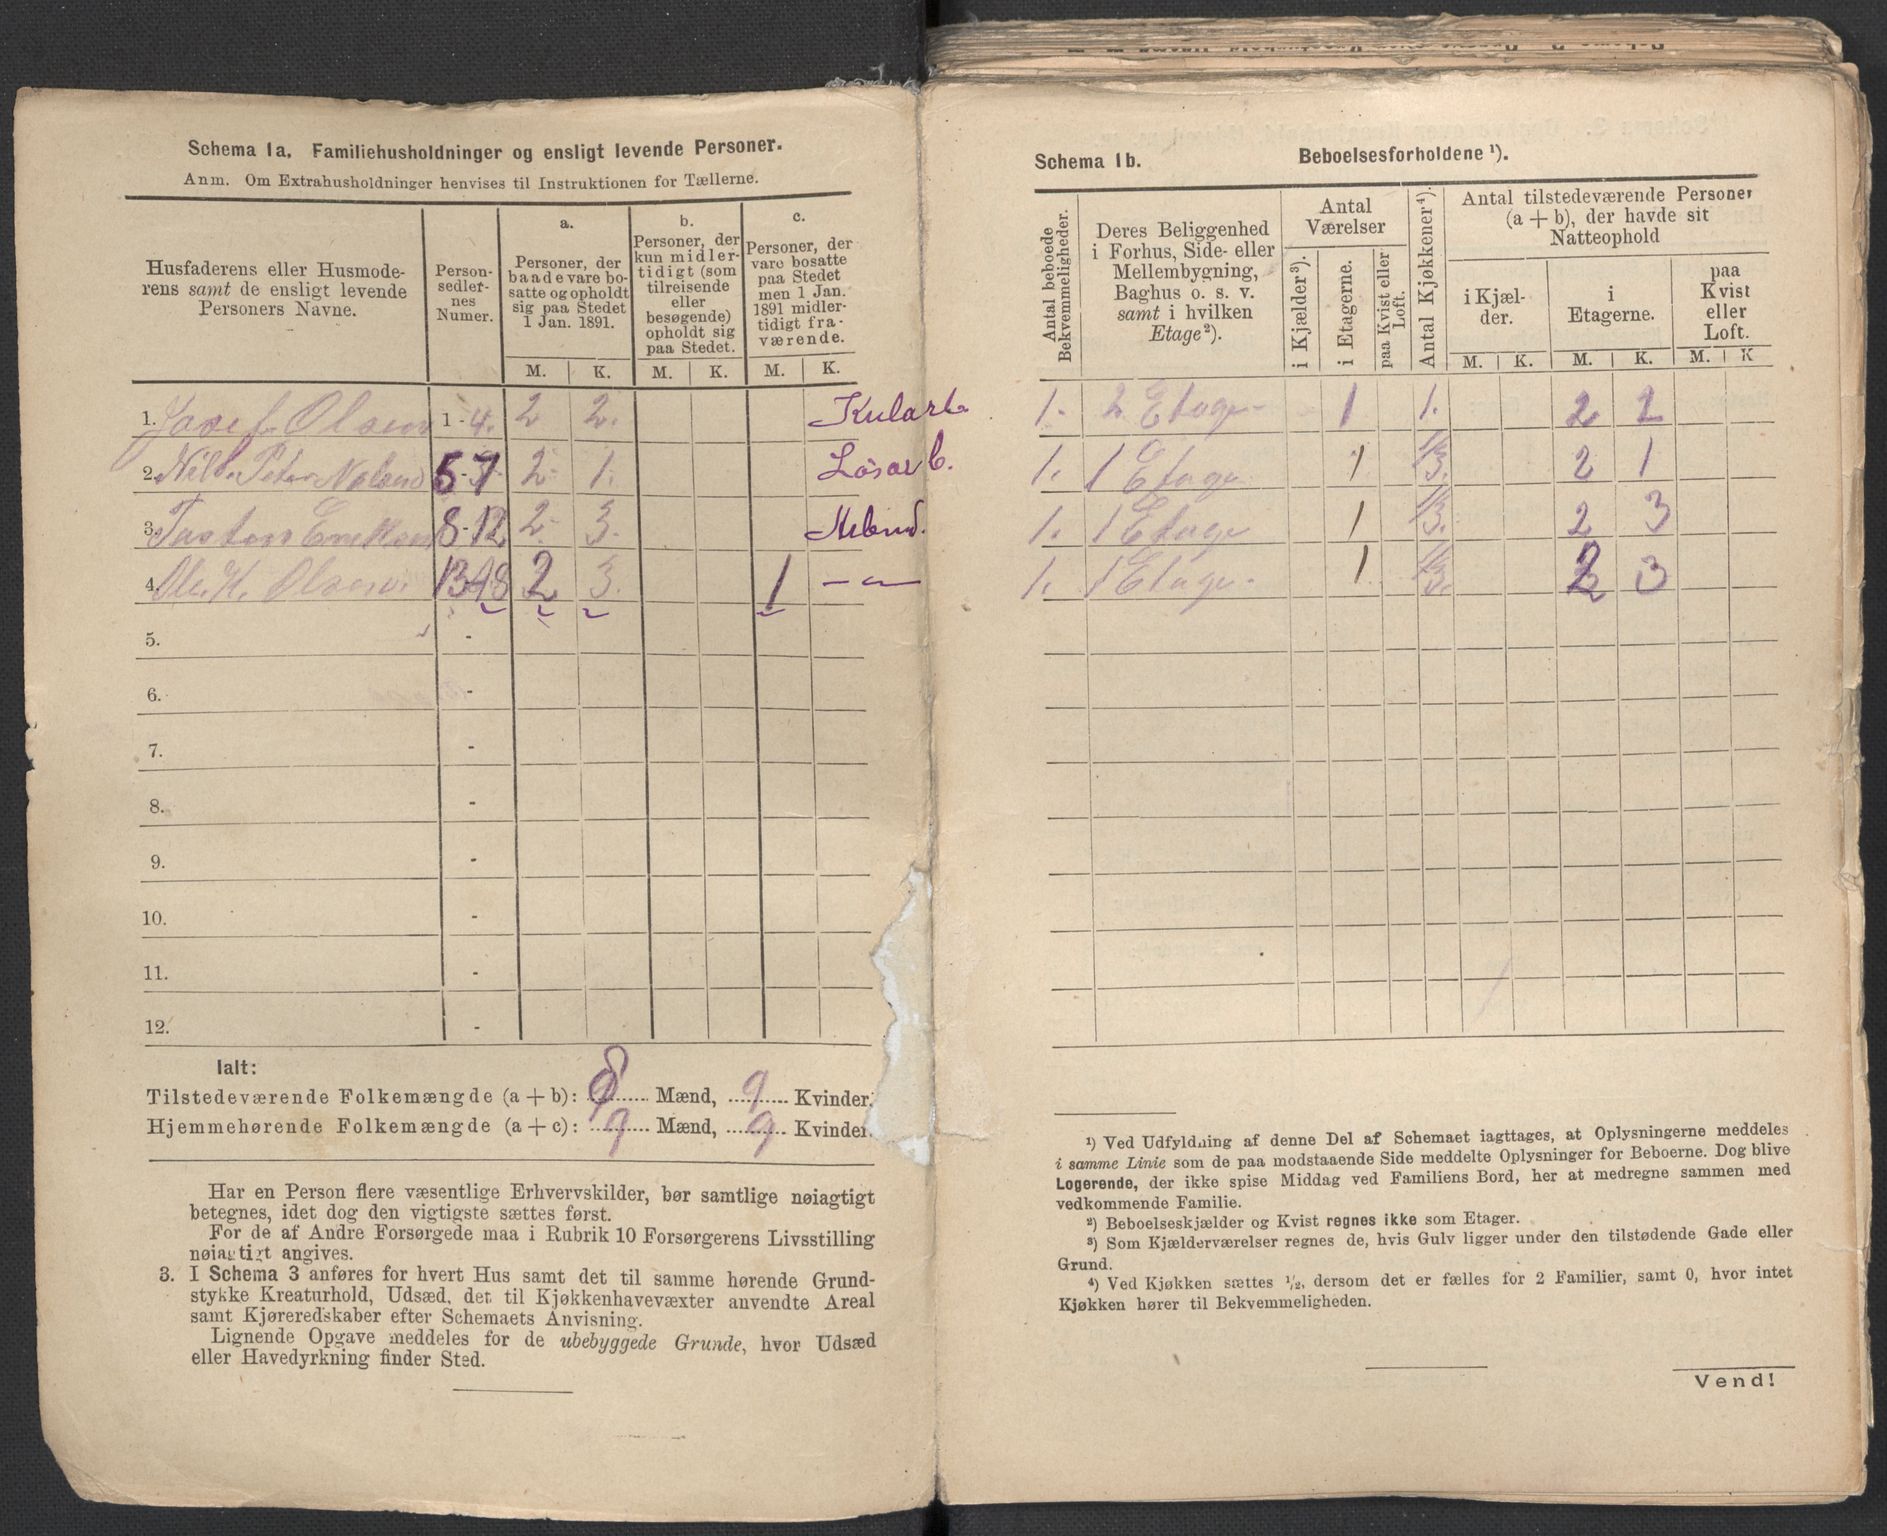 Schema 1a. Familiehusholdninger og ensligt levende Personer.
Anm. Om Extrahusholdninger henvises til Instruktionen for Tællerne.
Husfaderens eller Husmode-
rens samt de ensligt levende
Personers Navne.
Person-
sedler-
nes
Numer.
a.
Personer, der
baade vare bo-
satte og opholdt
sig paa Stedet
1 Jan. 1891.
b.
Personer, der
kun midler-
tidigt (som
tilreisende
eller
besøgende)
opholdt sig
paa Stedet.
c.
Personer, der
vare bosatte
paa Stedet
men 1 Jan.
1891 midler-
tidigt fra-
værende.
M. K. M. K. M. K.
1. Josef Olsen 1-4. 2 2.
2. Nils Peter 5-7 2- 1. Løsarb.
3. 8-12 2- 3.
4. Ole H. Olsen. 13-18 2 3. 1 — „ —
5. -
6. -
7. -
8. -
9. -
10. -
11. -
12. -
Ialt:
Tilstedeværende Folkemængde (a + b): 8 Mænd, 9 Kvinder.
Hjemmehørende Folkemængde (a + c): 9 Mænd, 9 Kvinder.
Har en Person flere væsentlige Erhvervskilder, bør samtlige nøiagtigt
betegnes, idet dog den vigtigste sættes først.
For de af Andre Forsørgede maa i Rubrik 10 Forsørgerens Livsstilling
nøiagtigt angives.
3. I Schema 3 anføres for hvert Hus samt det til samme hørende Grund-
stykke Kreaturhold, Udsæd, det til Kjøkkenhavevæxter anvendte Areal
samt Kjøreredskaber efter Schemaets Anvisning.
Lignende Opgave meddeles for de ubebyggede Grunde, hvor Udsæd
eller Havedyrkning finder Sted.
Schema 1b. Beboelsesforholdene ¹).
Antal beboede
Bekvemmeligheder.
Deres Beliggenhed
i Forhus, Side- eller
Mellembygning,
Baghus o. s. v.
samt i hvilken
Etage²).
Antal
Værelser
i Kjælder³).
i Etagerne.
paa Kvist eller
Loft.
Antal Kjøkkener⁴).
Antal tilstedeværende Personer
(a + b), der havde sit
Natteophold
i Kjæl-
der.
i
Etagerne.
paa
Kvist
eller
Loft.
M. K. M. K. M. K
1. 2 Etage- 1 1. 2 2
1. 1 Etage 1 1/3. 2 1
1. 1 Etage 1 1/3. 2 3
1. 1 Etage- 1 1/3. 2 3
¹) Ved Udfyldning af denne Del af Schemaet iagttages, at Oplysningerne meddeles
i samme Linie som de paa modstaaende Side meddelte Oplysninger for Beboerne. Dog blive
Logerende, der ikke spise Middag ved Familiens Bord, her at medregne sammen med
vedkommende Familie.
²) Beboelseskjælder og Kvist regnes ikke som Etager.
³) Som Kjælderværelser regnes de, hvis Gulv ligger under den tilstødende Gade eller
Grund.
⁴) Ved Kjøkken sættes ¹/₂, dersom det er fælles for 2 Familier, samt 0, hvor intet
Kjøkken hører til Bekvemmeligheden.
Vend!